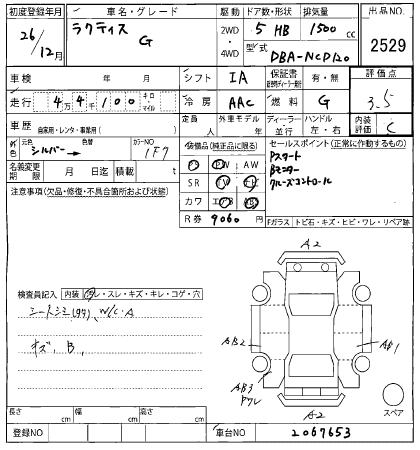 初度登録年月 車名・グレード 駆動 ドア数・形状 排気量 出品NO.
26/12月 ラクティス G 2WD・4WD 5 HB 1500 cc 2529
型式 DBA-NCP120
車検 年 月 シフト IA 保証書 有・無 評価点
走行 4万4千100 キロ・マイル 冷房 AAC 燃料 G 3.5
車歴 自家用・レンタ・事業用( ) 定員 人 外車モデル 年 ディーラー・並行 ハンドル 左・右 内装評価 C
色 元色 シルバー→ 色替 カラーNO 1F7
装備品(純正品に限る) セールスポイント(正常に作動するもの)
PS PW AW
Pスタート
名義変更期限 月 日迄 積載 t
SR TV ナビ
Bモニター
注意事項(欠品・修復・不具合箇所および状態)
カワ エアB ABS
クルーズコントロール
R券 9060 円
Fガラス トビ石・キズ・ヒビ・ワレ・リペア跡
A2
検査員記入 内装 ヨゴレ・スレ・キズ・キレ・コゲ・穴
シートシミ(タタ)、W/C・A
キズ、B、
AB2
AB1
AB3
ドワレ
A2
スペア
長さ cm 幅 cm 高さ cm
登録NO 車台NO 2067653